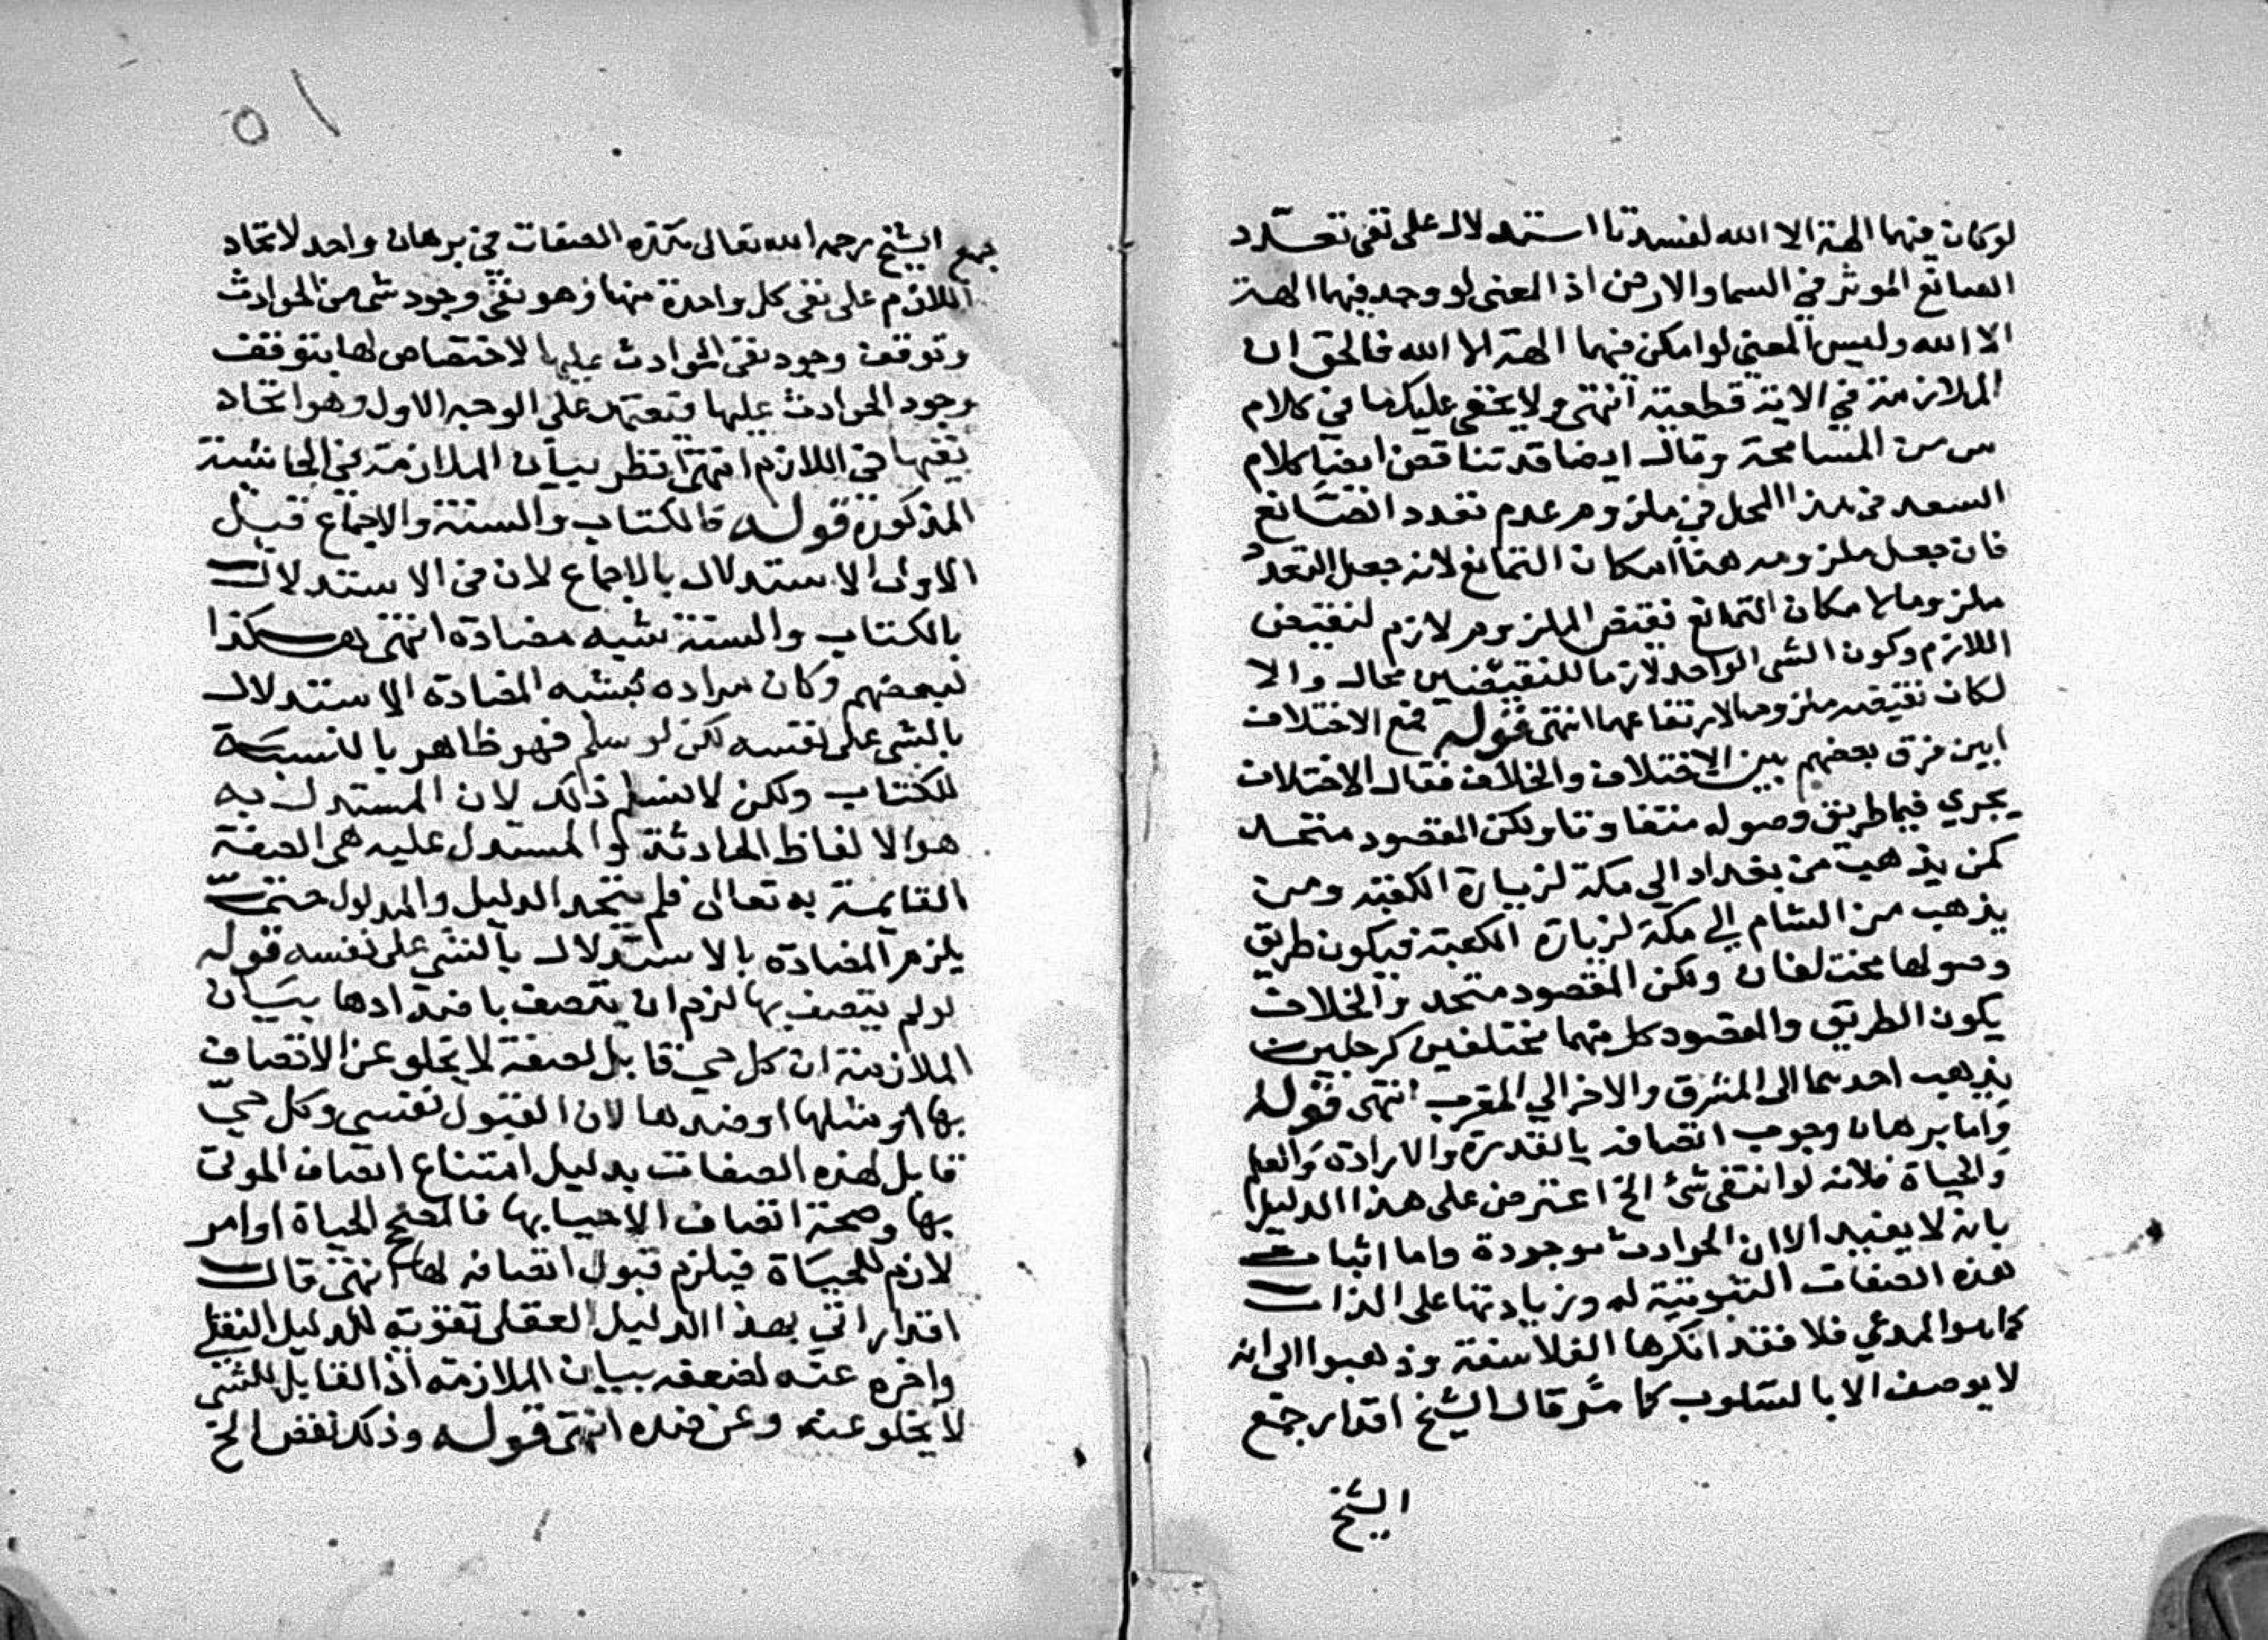 لو كان فيهما الهة الا الله لفسدتا استدلال على نفى تعدد
الصانع الموثر في السما والارض اذ المعنى لو وجد فيهما الهة
الا الله وليس المعنى لو امكن فيهما الهة الا الله فالحق ان
الملازمة في الاية قطعية انتهى ولا يخفى عليك ما في كلام
س من المسامحة وقال ايضا قد تناقض ايضا كلام
السعد في هذا المحل في ملزوم عدم تعدد الصانع
فان جعل ملزومه هنا امكان التمانع لانه جعل التعدد
ملزوما لامكان التمانع فنقيض الملزوم لازم لنقيض
اللازم وكون الشى الواحد لازما للنقيضين محال والا
لكان نقيضه ملزوما لارتفاعهما انتهى قوله فمع الاختلاف
ابين فرق بعضهم بين الاختلاف والخلاف فقال الاختلاف
يجري فيما طريق وصوله متفاوتا ولكن المقصود متحد
كمن يذهب من بغداد الى مكة لزيارة الكعبة ومن
يذهب من الشام الى مكة لزيارة الكعبة فيكون طريق
وصولها مختلفان ولكن المقصود متحد والخلاف
يكون الطريق والمقصود كل منهما مختلفين كرجلين
يذهب احدهما الى المشرق والاخر الي المغرب انتهى قوله
واما برهان وجوب اتصافه بالقدرة والارادة والعلم
والحياة فلانه لو انتفى شئ الخ اعترض على هذا الدليل
بانه لا يفيد الا ان الحوادث موجودة واما اثبات
هذه الصفات الثبوتية له وزيادتها على الذات
كما هو المدعي فلا فقد انكرها الفلاسفة وذهبوا الى انه
لا يوصف الا بالسلوب كما مر قال الشيخ اقدار جمع
الشيخ
٥١
جمع الشيخ رحمه الله تعالى هذه الصفات في برهان واحد لاتحاد
اللازم على نفى كل واحدة منها وهو نفى وجود شى من الحوادث
وتوقف وجود نفى الحوادث عليها لا اختصاص لها بتوقف
وجود الحوادث عليها فتعتمد على الوجه الاول وهو اتحاد
نفيها في اللازم انتهى انظر بيان الملازمة في الحاشية
المذكورة قوله فالكتاب والسنة والاجماع قيل
الاولى الاستدلال بالاجماع لان في الاستدلال
بالكتاب والسنة شبه مصادة انتهى هكذا
لبعضهم وكان مراده بشبه المصادة الاستدلال
بالشى على نفسه لكن لو سلم فهو ظاهر بالنسبة
للكتاب ولكن لا نسلم ذلك لان المستدل به
هو الالفاظ الحادثة والمستدل عليه هى الصفة
القايمة به تعالى فلم يتحد الدليل والمدلول حتى
يلزم المصادة بالاستدلال بالشى على نفسه قوله
لو لم يتصف بها لزم ان يتصف باضدادها بيان
الملازمة ان كل حي قابل لصفة لا يخلو عن الاتصاف
بها او مثلها او ضدها لان القبول نفسي وكل حيّ
قابل لهذه الصفات بدليل امتناع اتصاف الموتى
بها وصحة اتصاف الاحيا بها فالمصحح الحياة او امر
لازم للحياة فيلزم قبول اتصافه لها انتهى قال
اقدار اتي بهذا الدليل العقلى تقوية للدليل النقلي
واخره عنه لضعفه ببيان الملازمة اذ القابل للشى
لا يخلو عنه وعن ضده انتهى قوله وذلك نقض الخ